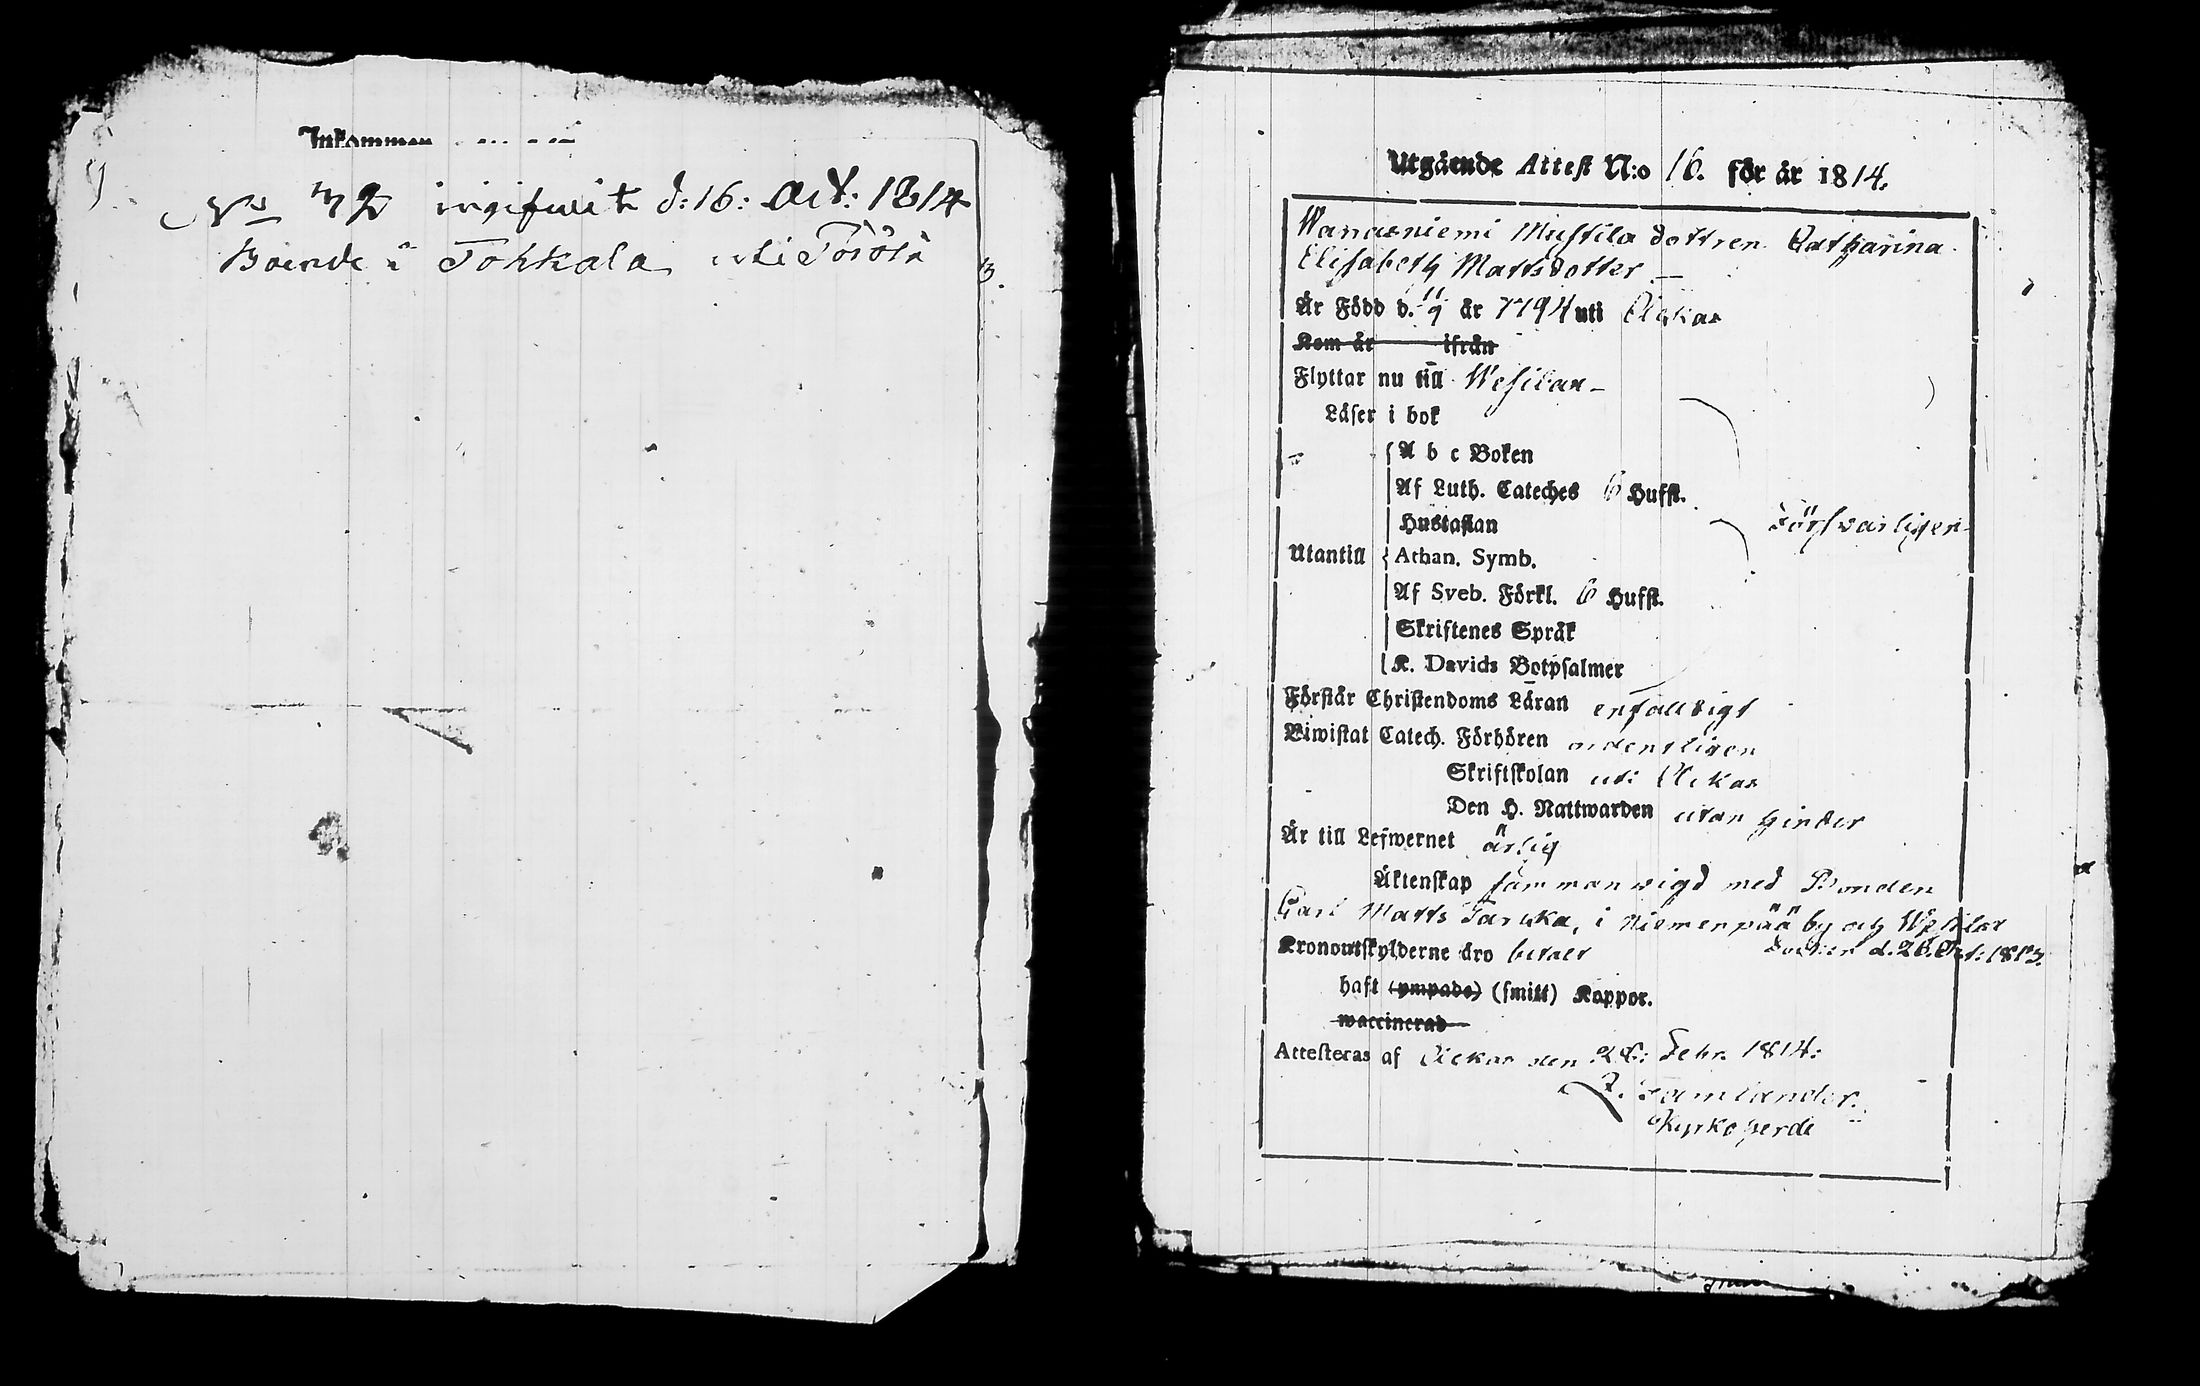 Inkommen
No 32 ingifwit d: 16: Oct: 1814
Boende i Tohkala uti Törölä
Utgående Attest N:o 16. för år 1814.
Wanaeniemi Mustila dottren Catharina
Elisabeth Mattsdotter
Är Född d. 11/9 år 1794 uti
Kom år ifrån
Flyttar nu till Wesilax
Läser i bok
A b c Boken
Af Luth. Cateches 6 Hufst.
Hustaflan
Försvarligen
Utantill Athan. Symb.
Af Sveb. Förkl. 6 Hufst.
Skriftenes Språk
K. Davids Botpsalmer
Förstår Christendoms Läran enfalldigt
Biwistat Catech. Förhören ordentligen
Skriftskolan uti
Den H. Nattwarden utan hinder
Är till Lefwernet ärlig
Äktenskap samman wigd med Bonden
Carl Matts i Niemenpää by och Wesilax
Socken d. 26. Oct: 1813.
Kronoutskylderne äro betalt
haft (ympade) (smitt) Koppor.
waccinerad
Attesteras af den 28: Febr. 1814:
Kyrkoherde